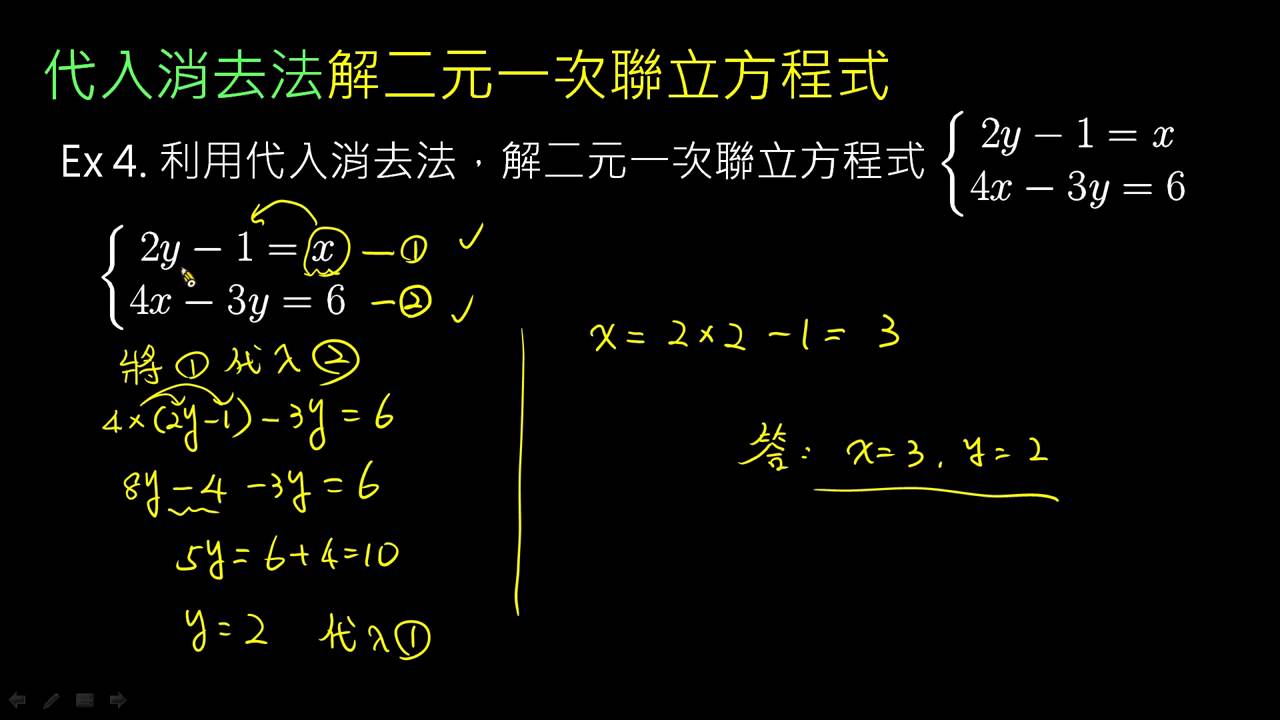 代入消去法解二元一次聯立方程式
Ex 4. 利用代入消去法，解二元一次聯立方程式 { 2y − 1 = x
4x − 3y = 6
{ 2y − 1 = x — ①
4x − 3y = 6 — ②
將 ① 代入 ②
4×(2y−1)−3y = 6
8y −4 −3y = 6
5y = 6+4=10
y = 2 代入①
x = 2×2 −1 = 3
答: x=3, y=2